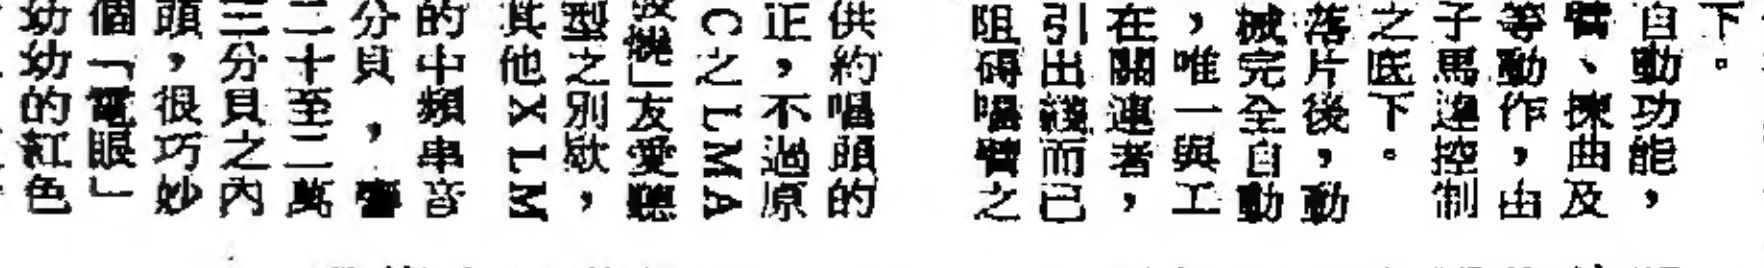 下。
自動功能，
臂、揀曲及
等動作，由
子馬達控制
之底下。
落片後，動
械完全自動
，唯一與工
在關連者，
引出綫而已
阻碍唱臂之
供約唱頭的
正，不過原
C之LMA
說」友愛聽
型之別歟，
其他XLM
的中頻串音
分貝，響
二十至二萬
三分貝之內
頭，很巧妙
個「電眼」
幼幼的紅色